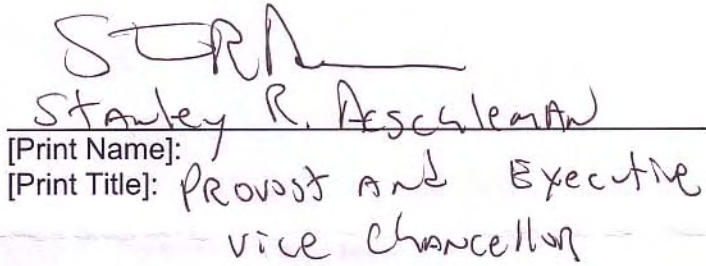 Stanley R. Aeschleman
[Print Name]:
[Print Title]: Provost And Executive
vice Chancellor